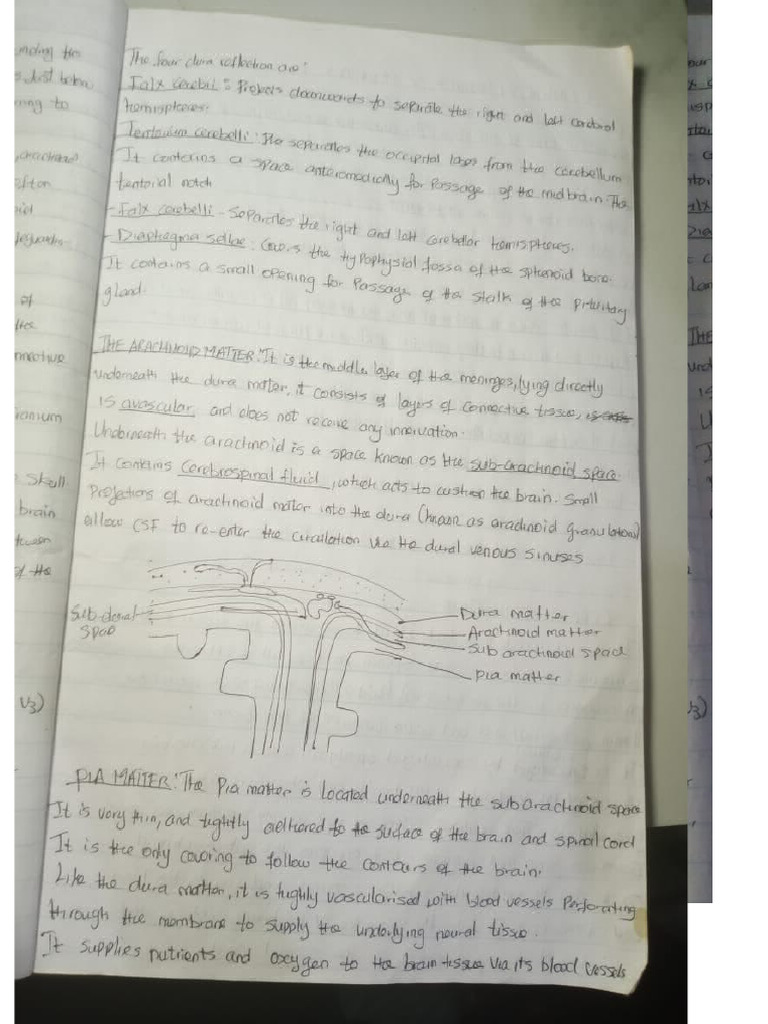 The four dura reflection are:
Falx cerebri :- Projects downwards to separate the right and left cerebral
hemispheres.
Tentorium cerebelli: separates the occipital lobes from the cerebellum
It contains a space anteromedially for Passage of the midbrain. The
tentorial notch
- Falx cerebelli - Separates the right and left cerebellar hemispheres.
- Diaphragma sellae: Covers the Hypophysial fossa of the sphenoid bone.
It contains a small opening for Passage of the stalk of the pituitary
gland.
THE ARACHNOID MATTER: It is the middle layer of the meninges, lying directly
underneath the dura matter, it consists of layers of connective tissue,
is avascular, and does not receive any innervation.
Underneath the arachnoid is a space known as the sub-arachnoid space.
It contains Cerebrospinal fluid, which acts to cushion the brain. Small
Projections of arachnoid matter into the dura (known as arachnoid granulations)
allow CSF to re-enter the circulation via the dural venous sinuses
Sub dural
Space
Dura matter
Arachnoid matter
Sub arachnoid space
Pia matter
PIA MATTER: The Pia matter is located underneath the sub arachnoid space
It is very thin, and tightly adhered to the surface of the brain and spinal cord
It is the only covering to follow the contours of the brain.
Like the dura matter, it is highly vascularised with blood vessels Perforating
through the membrane to supply the underlying neural tissue.
It supplies nutrients and oxygen to the brain tissue via its blood vessels